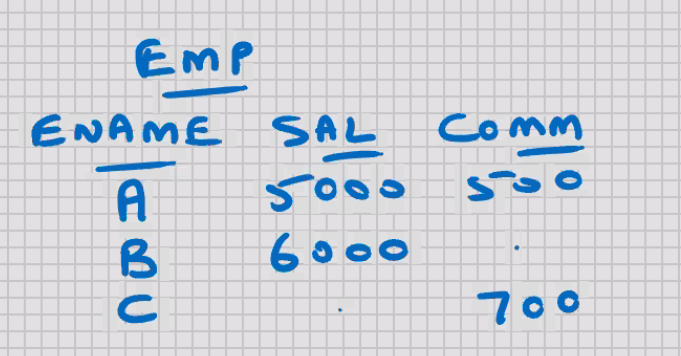 EMP
ENAME SAL COMM
A 5000 500
B 6000 .
C . 700